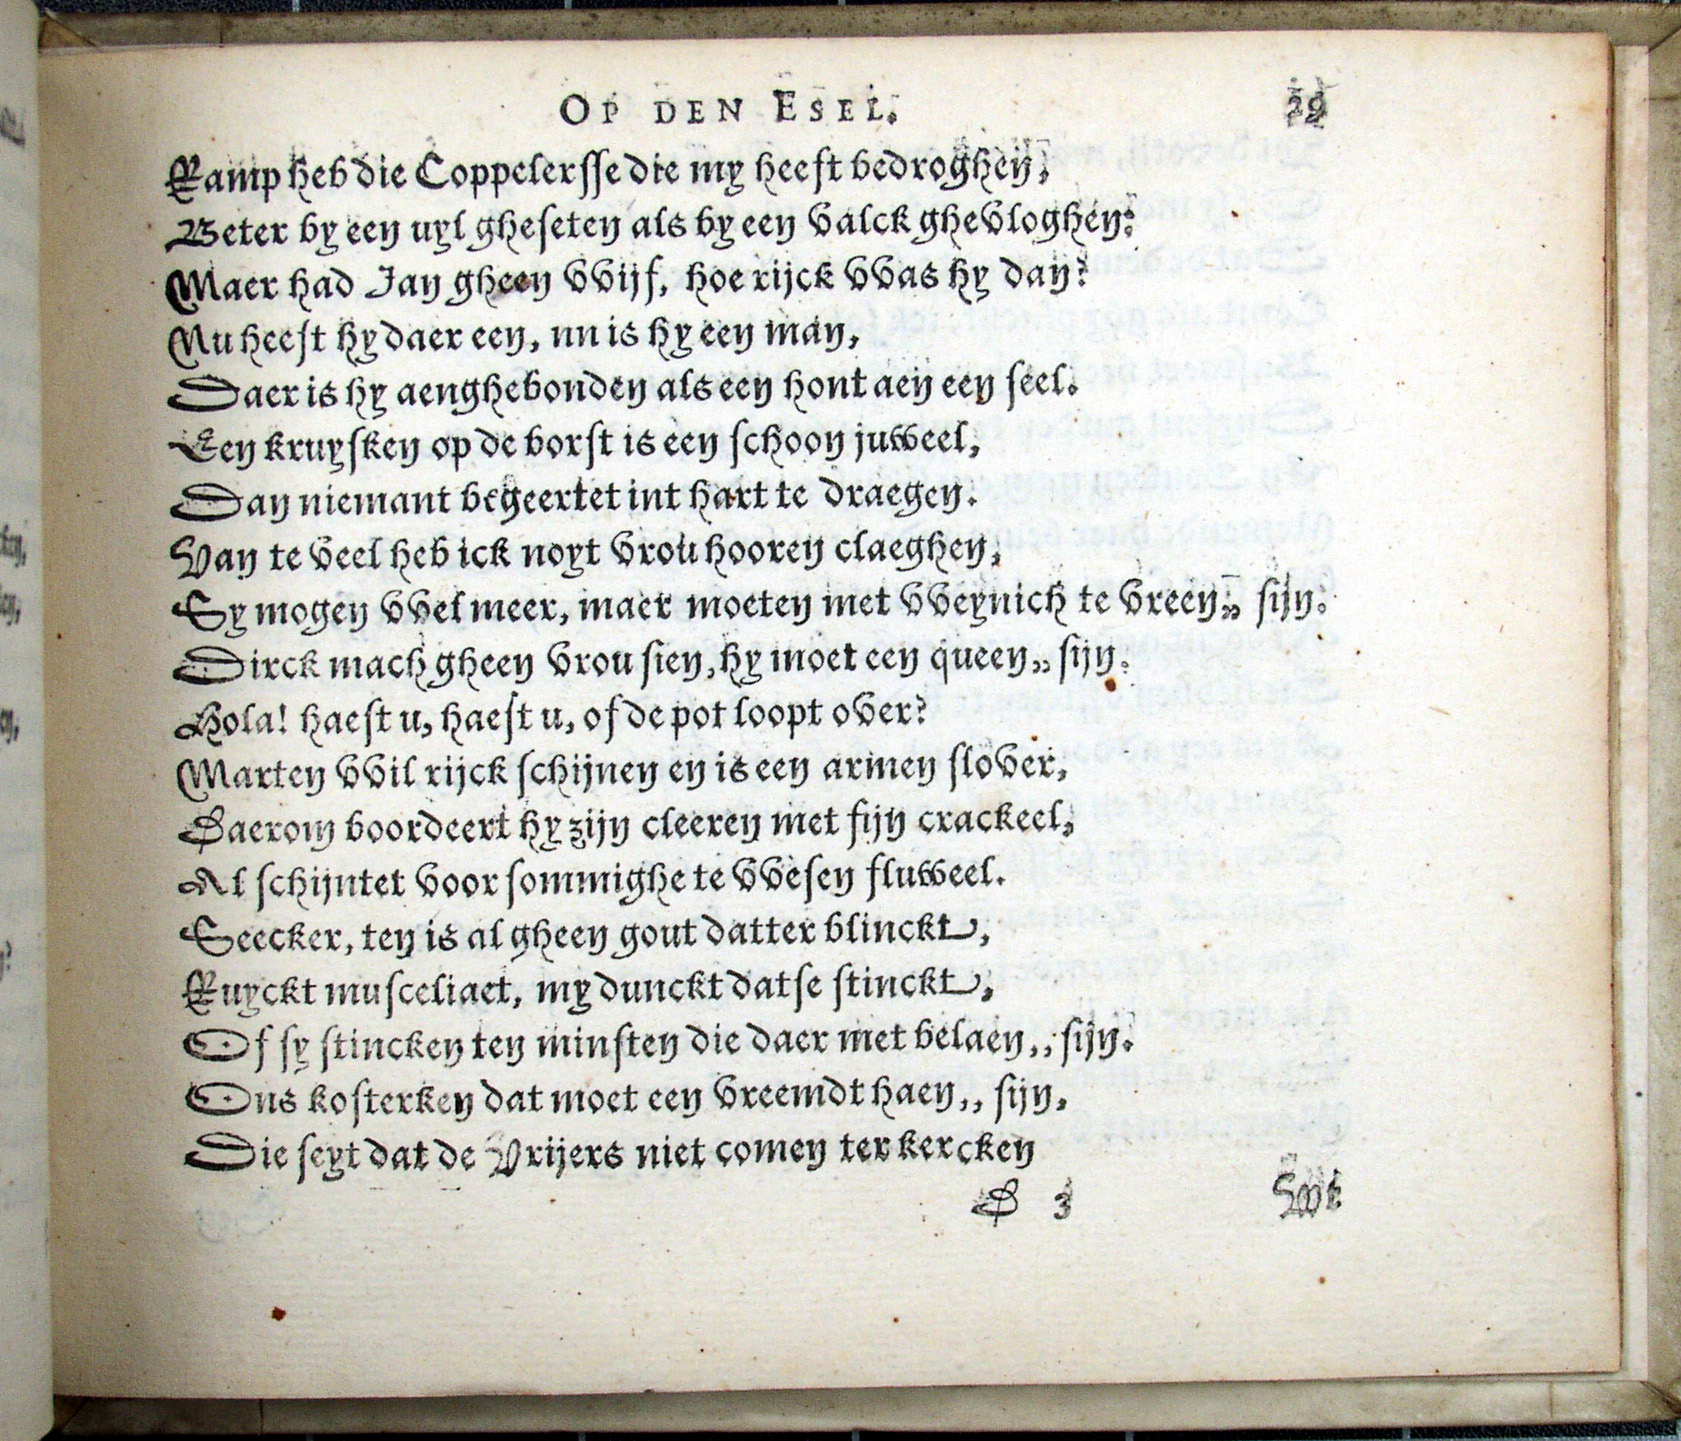 OP DEN ESEL. 29
Ramp heb die Coppelersse die my heeft bedroghen,
Beter by een uyl gheseten als by een valck ghevloghen:
Maer had Jan gheen vvijf, hoe rijck vvas hy dan?
Nu heeft hy daer een, nu is hy een man,
Daer is hy aenghebonden als een hont aen een seel.
Een kruysken op de borst is een schoon juweel,
Dan niemant begeertet int hart te draegen.
Van te veel heb ick noyt vrou hooren claeghen,
Sy mogen vvel meer, maer moeten met vveynich te vreen,, sijn.
Dirck mach gheen vrou sien, hy moet een queen,, sijn.
Hola! haest u, haest u, of de pot loopt over?
Marten vvil rijck schijnen en is een armen slover,
Daerom boordeert hy zijn cleeren met fijn crackeel,
Al schijntet voor sommighe te vvesen fluweel.
Seecker, ten is al gheen gout datter blinckt,
Ruyckt musceliaet, my dunckt datse stinckt,
Of sy stincken ten minsten die daer met belaen,, sijn.
Ons kosterken dat moet een vreemdt haen,, sijn,
Die seyt dat de Vrijers niet comen ter kercken
D 3